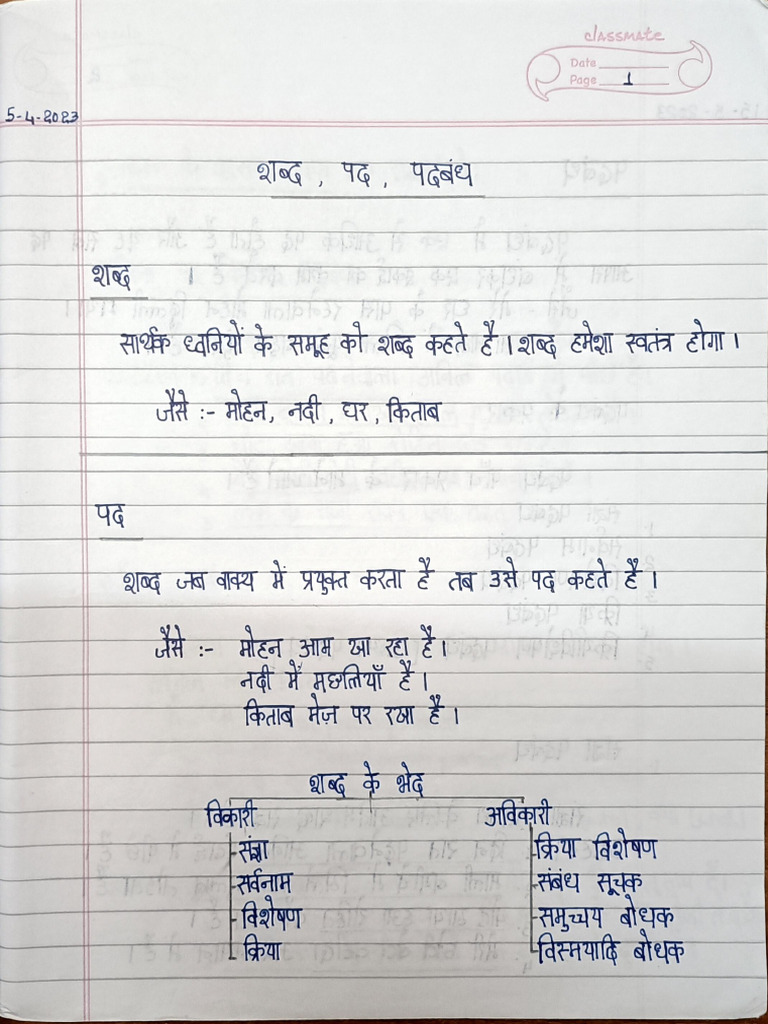 classmate
Date
Page 1
5-4-2023
शब्द , पद , पदबंध
शब्द
सार्थक ध्वनियों के समूह को शब्द कहते है। शब्द हमेशा स्वतंत्र होगा।
जैसे :- मोहन, नदी, घर, किताब
पद
शब्द जब वाक्य में प्रयुक्त करता है तब उसे पद कहते है।
जैसे :- मोहन आम खा रहा है।
नदी में मछलियाँ है।
किताब मेज़ पर रखा है।
शब्द के भेद
विकारी अविकारी
संज्ञा क्रिया विशेषण
सर्वनाम संबंध सूचक
विशेषण समुच्चय बोधक
क्रिया विस्मयादि बोधक